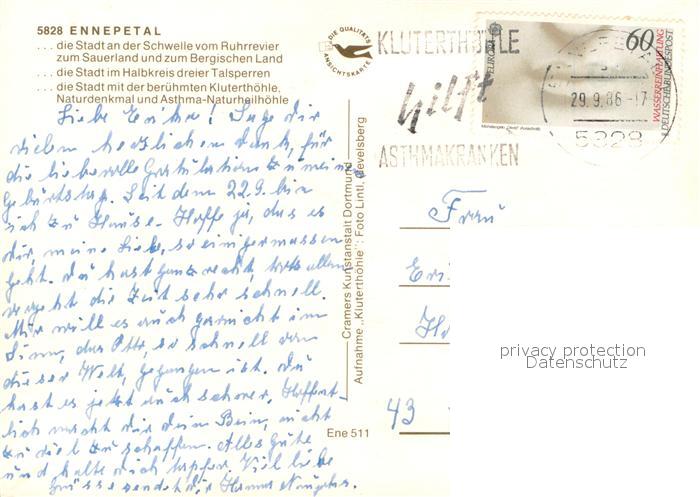 5828 ENNEPETAL
... die Stadt an der Schwelle vom Ruhrrevier
zum Sauerland und zum Bergischen Land
... die Stadt im Halbkreis dreier Talsperren
... die Stadt mit der berühmten Kluterthöhle,
Naturdenkmal und Asthma-Naturheilhöhle
DIE QUALITÄTS
ANSICHTSKARTE
KLUTERTHÖHLE
hilft
ASTHMAKRANKEN
EUROPA
60
WASSERREINHALTUNG
DEUTSCHE BUNDESPOST
29.9.86-17
5828
Liebe ! Sage dir
vielen herzlichen Dank, für
die liebevolle Gratulation zu meinem
Geburtstag. Seit dem 22.9. bin
ich zu Hause. Hoffe ja, das es
dir, meine Liebe, so einigermassen
geht. Du hast ganz recht, trotz allem
vergeht die Zeit sehr schnell.
Mir will es auch garnicht im
Sinn, das Otto, so schnell von
dieser Welt, gegangen ist. Du
hast es jetzt auch schwer. Hoffent-
lich macht dir dein Bein, nicht
zu viel zu schaffen. Alles Gute
und halte dich tapfer. Viel liebe
Grüsse sendet dir Hanna
Cramers Kunstanstalt Dortmund
Aufnahme „Kluterthöhle": Foto Lintl, Gevelsberg
Ene 511
Frau
43
privacy protection
Datenschutz